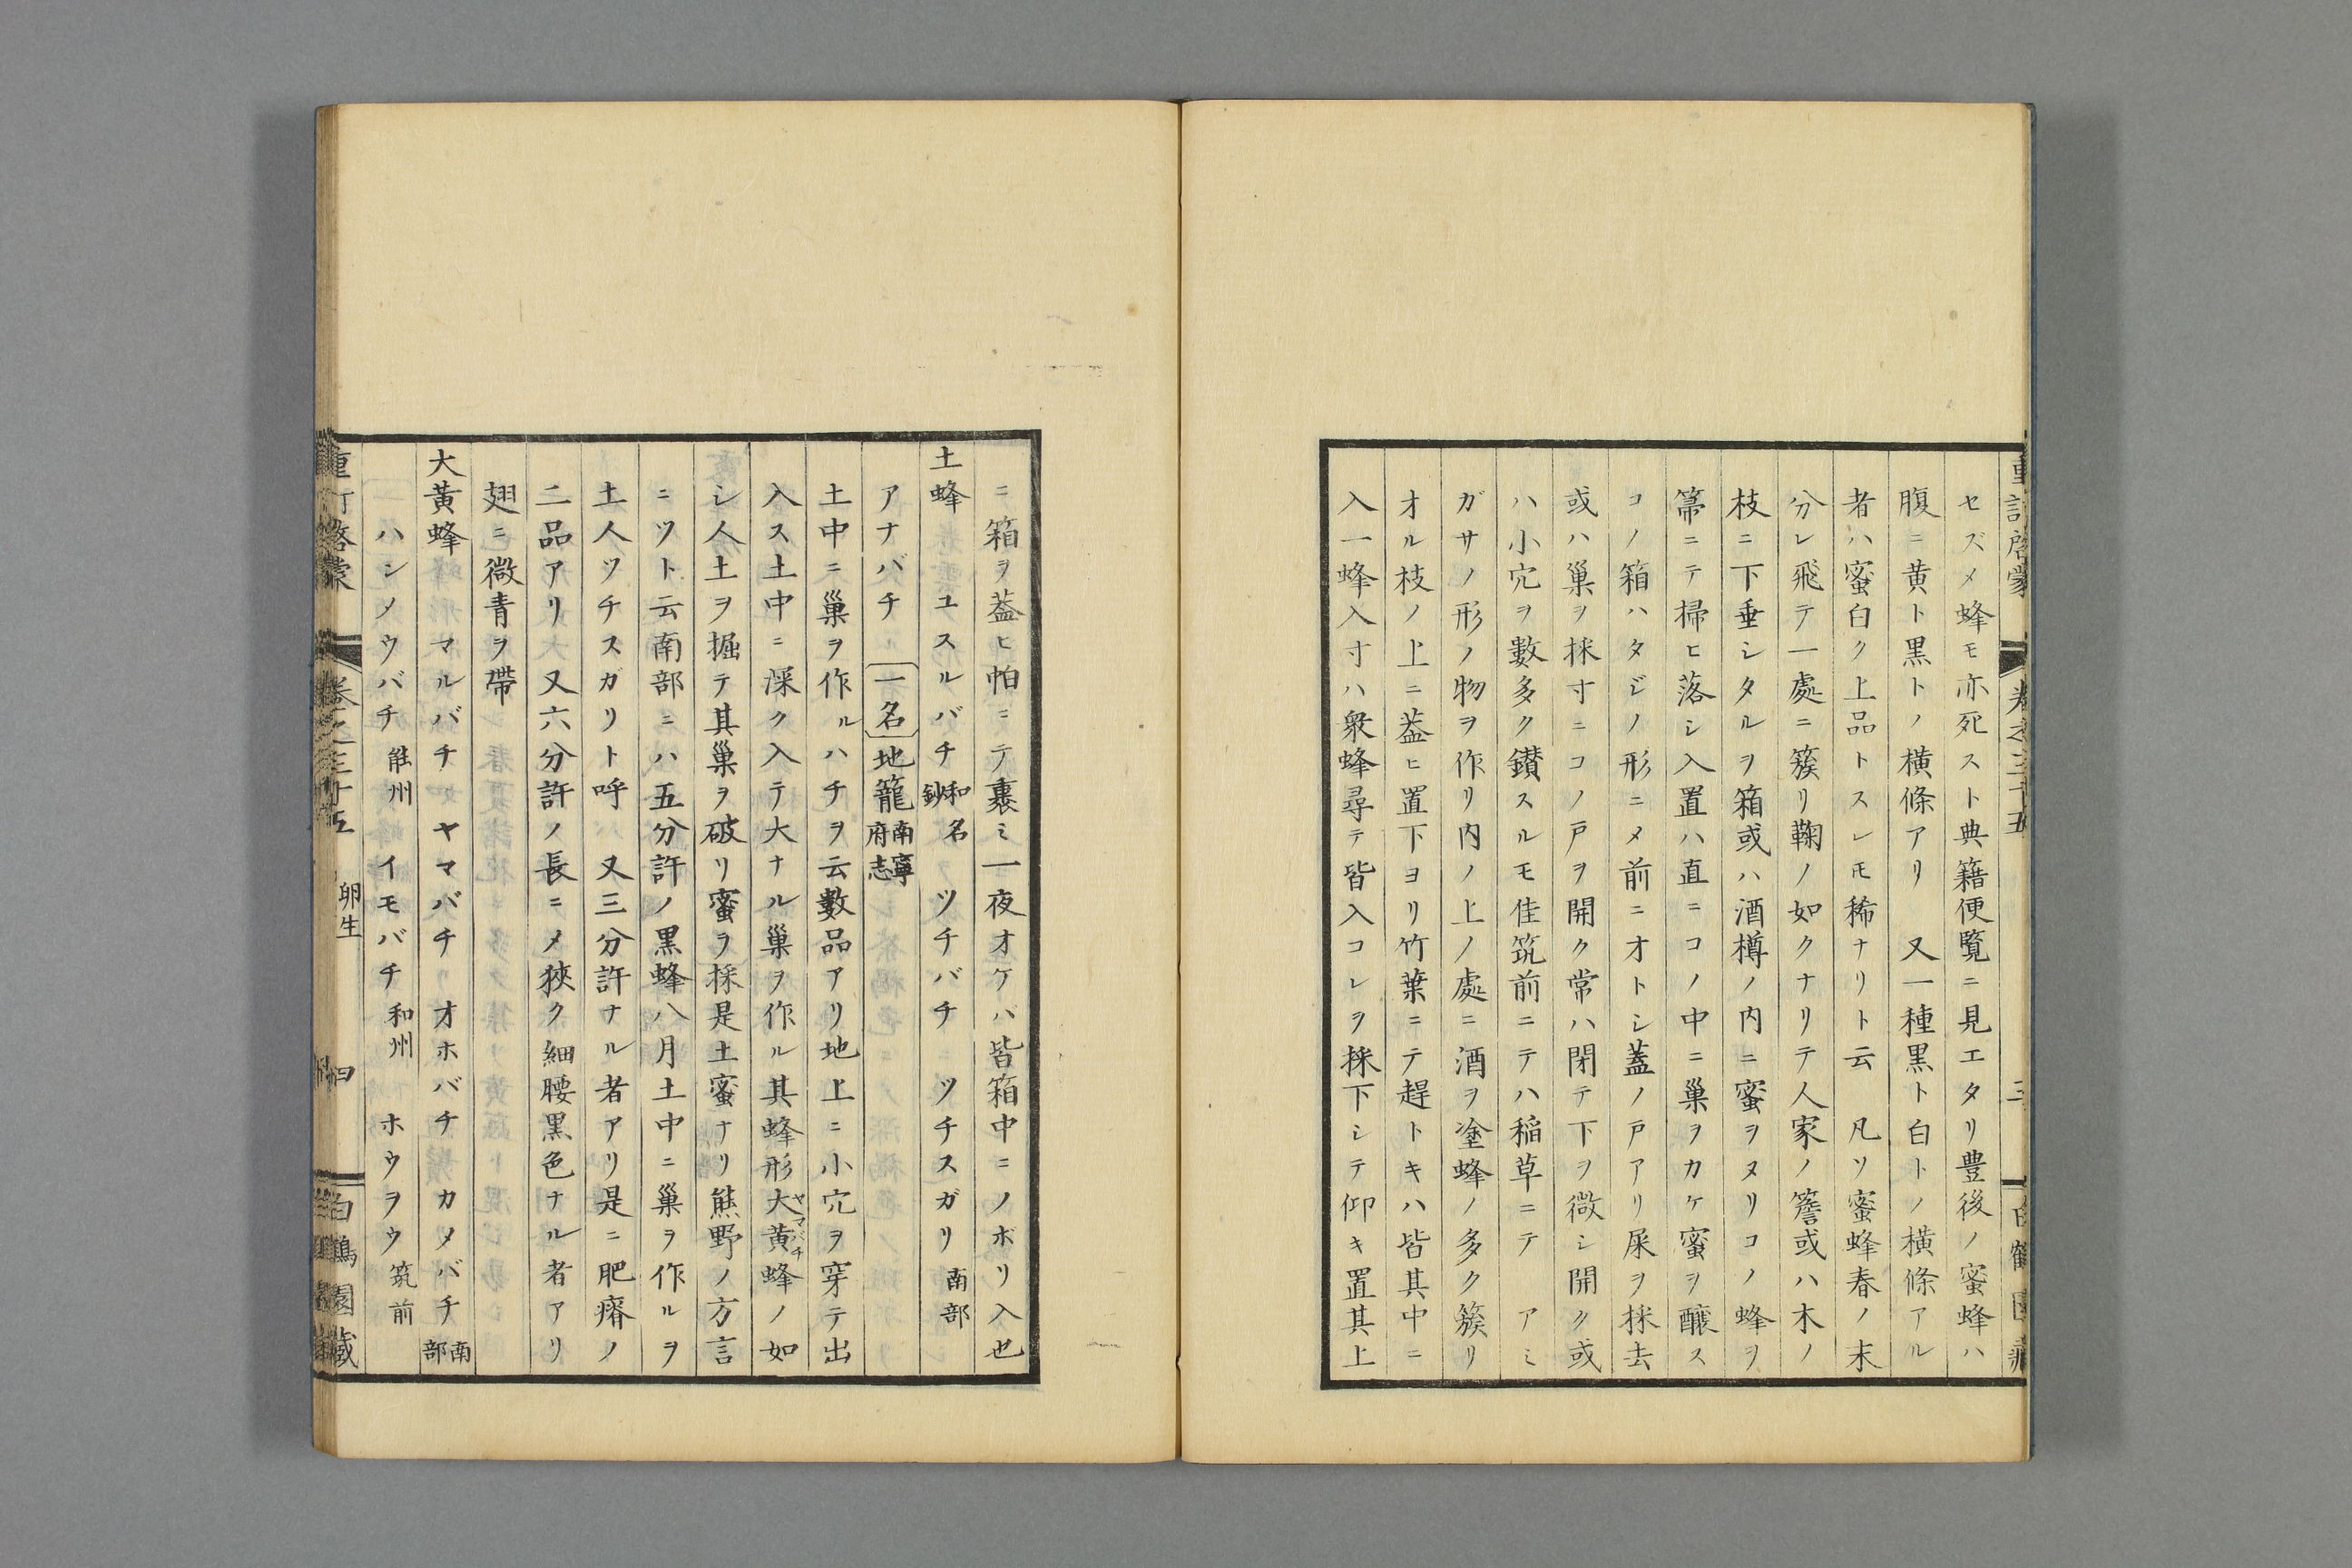 セズメ蜂モ亦死スト典籍便覧ニ見エタリ豊後ノ蜜蜂ハ
腹ニ黄ト黒トノ横條アリ　又一種黒ト白トノ横條アル
者ハ蜜白ク上品トスレモ稀ナリト云　凡ソ蜜蜂春ノ末
分レ飛テ一處ニ簇リ鞠ノ如クナリテ人家ノ簷或ハ木ノ
枝ニ下垂シタルヲ箱或ハ酒樽ノ内ニ蜜ヲヌリコノ蜂ヲ
箒ニテ掃ヒ落シ入置ハ直ニコノ中ニ巣ヲカケ蜜ヲ醸ス
コノ箱ハタジノ形ニメ前ニオトシ蓋ノ戸アリ屎ヲ採去
或ハ巣ヲ採寸ニコノ戸ヲ開ク常ハ閉テ下ヲ微シ開ク或
ハ小穴ヲ數多ク鑚スルモ佳筑前ニテハ稲草ニテ　アミ
ガサノ形ノ物ヲ作リ内ノ上ノ處ニ酒ヲ塗蜂ノ多ク簇リ
オル枝ノ上ニ葢ヒ置下ヨリ竹葉ニテ趕トキハ皆其中ニ
入一蜂入寸ハ衆蜂尋テ皆入コレヲ採下シテ仰キ置其上
ニ箱ヲ葢ヒ帕ニテ裹ミ一夜オケバ皆箱中ニノボリ入也
土蜂　ユスルバチ和名鈔　ツチバチ　ツチスガリ南部
アナバチ　一名地籠南寧府志
土中ニ巣ヲ作ルハチヲ云數品アリ地上ニ小穴ヲ穿テ出
入ス土中ニ深ク入テ大ナル巣ヲ作ル其蜂形大黄蜂ヤマバチノ如
シ人土ヲ掘テ其巣ヲ破リ蜜ヲ採是土蜜ナリ熊野ノ方言
ニツト云南部ニハ五分許ノ黒蜂八月土中ニ巣ヲ作ルヲ
土人ツチスガリト呼　又三分許ナル者アリ是ニ肥瘠ノ
二品アリ　又六分許ノ長ニメ狹ク細腰黒色ナル者アリ
翅ニ微青ヲ帶
大黄蜂　マルバチ　ヤマバチ　オホバチ　カメバチ南部
ハンメウバチ能州　イモバチ和州　ホウヲウ筑前
重訂啓蒙　巻之三十五　卵生　四　白鶴園藏